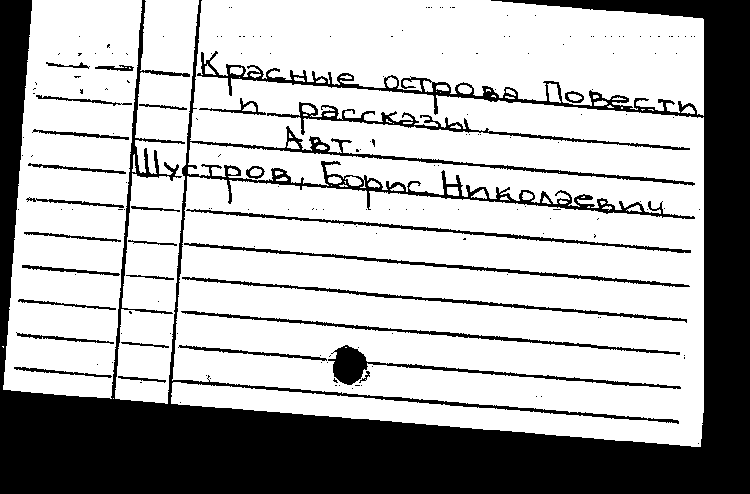 Красные острова Повести
и рассказы.
Авт.:
Шустров, Борис Николаевич